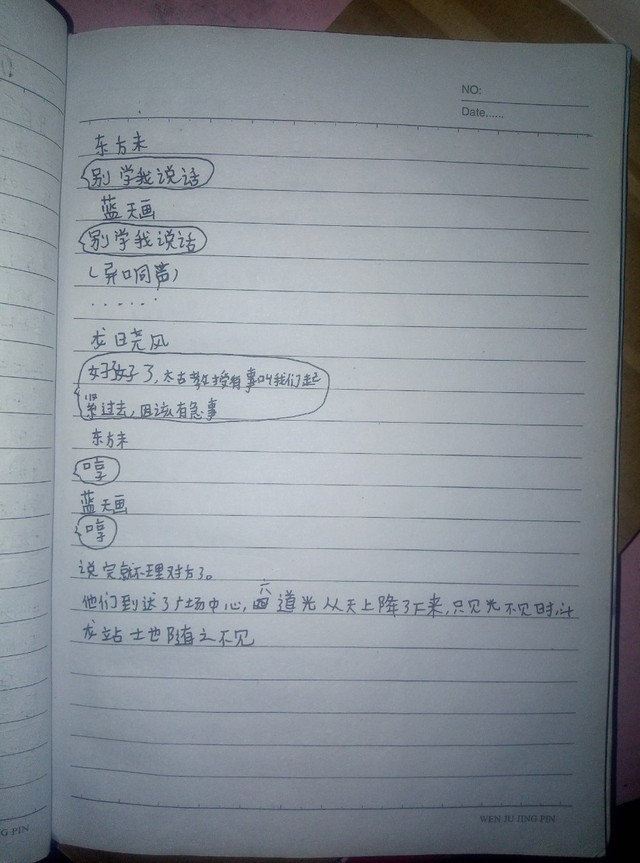 NO:
Date......
东方末
别学我说话
蓝天画
别学我说话
(异口同声)
......
龙日尧风
好好了,太古教授有事叫我们赶
紧过去,因该有急事
东方末
哼
蓝天画
哼
说完就不理对方了。
他们到达了广场中心,六道光从天上降了下来,只见光不见时,斗
龙站士也随之不见
WEN JU JING PIN
G PIN